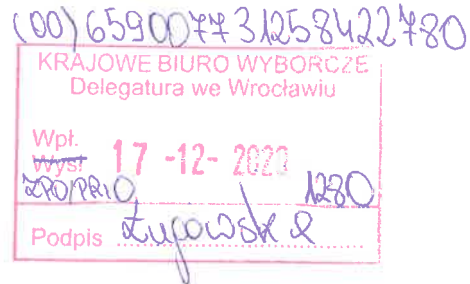 (00) 659007731258422780
KRAJOWE BIURO WYBORCZE
Delegatura we Wrocławiu
Wpł.
Wysł
17 -12- 2020
ZPO/PRIO 1280
Podpis